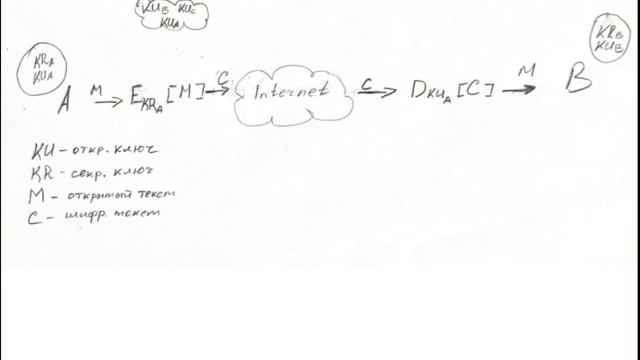 KU_B KU_C
KU_A
KR_A
KU_A
KR_B
KU_B
A M → E_KR_A [M] → C Internet C → D_KU_A [C] → M B
KU - откр. ключ
KR - секр. ключ
M - открытый текст
C - шифр. текст